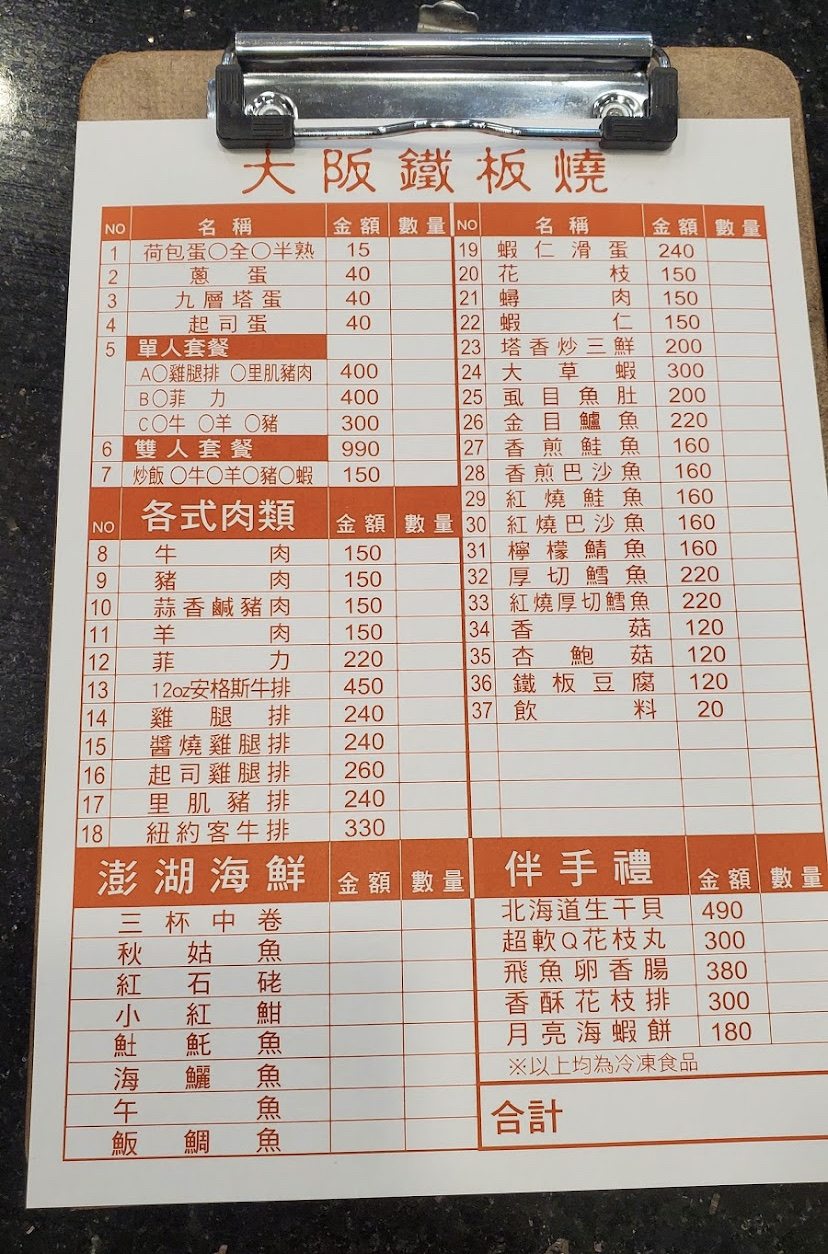 大阪鐵板燒
NO 名稱 金額 數量
1 荷包蛋○全○半熟 15
2 蔥蛋 40
3 九層塔蛋 40
4 起司蛋 40
5 單人套餐
A○雞腿排 ○里肌豬肉 400
B○菲力 400
C○牛 ○羊 ○豬 300
6 雙人套餐 990
7 炒飯 ○牛○羊○豬○蝦 150
NO 各式肉類 金額 數量
8 牛肉 150
9 豬肉 150
10 蒜香鹹豬肉 150
11 羊肉 150
12 菲力 220
13 12oz安格斯牛排 450
14 雞腿排 240
15 醬燒雞腿排 240
16 起司雞腿排 260
17 里肌豬排 240
18 紐約客牛排 330
澎湖海鮮 金額 數量
三杯中卷
秋姑魚
紅石硓
小紅魽
魟魠魚
海鱺魚
午魚
魬鯛魚
NO 名稱 金額 數量
19 蝦仁滑蛋 240
20 花枝 150
21 蟳肉 150
22 蝦仁 150
23 塔香炒三鮮 200
24 大草蝦 300
25 虱目魚肚 200
26 金目鱸魚 220
27 香煎鮭魚 160
28 香煎巴沙魚 160
29 紅燒鮭魚 160
30 紅燒巴沙魚 160
31 檸檬鯖魚 160
32 厚切鱈魚 220
33 紅燒厚切鱈魚 220
34 香菇 120
35 杏鮑菇 120
36 鐵板豆腐 120
37 飲料 20
伴手禮 金額 數量
北海道生干貝 490
超軟Q花枝丸 300
飛魚卵香腸 380
香酥花枝排 300
月亮海蝦餅 180
※以上均為冷凍食品
合計